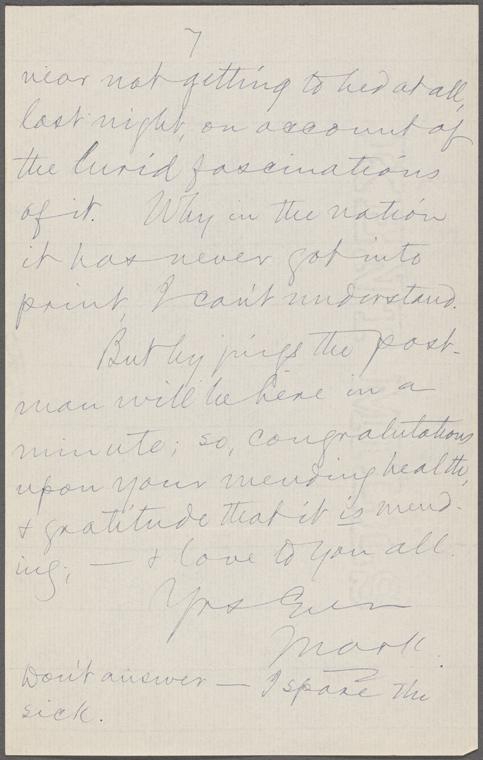 7
near not getting to bed at all,
last night, on account of
the lurid fascinations
of it. Why in the nation
it has never got into
print, I can't understand.
But by jings the post-
man will be here in a
minute; so, congratulations
upon your mending health,
& gratitude that it is mend-
ing; — & love to you all.
Yrs Ever
Mark.
Don't answer — I spare the
sick.